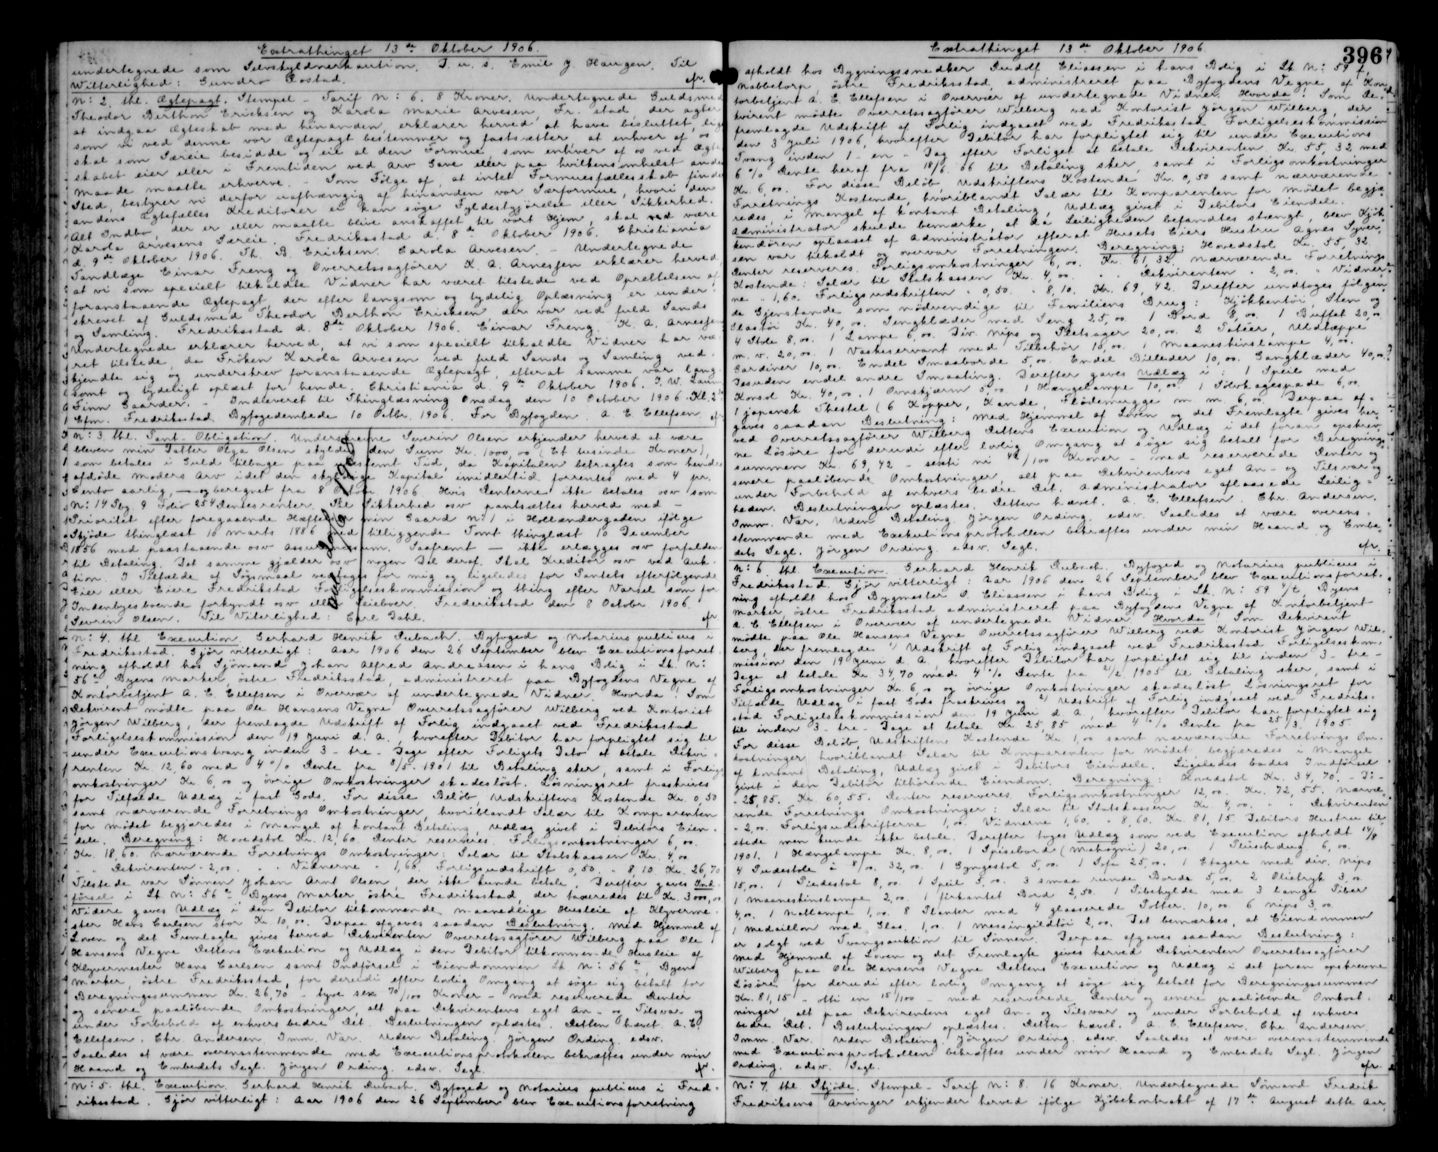 Extrathinget 13de Oktober 1906.
undertegnede som Selvskyldnerkaution. T. u. s. Emil J. Haugen. Til
Vitterlighed: Gundro Rostad. cfr.
N: 2. thl. Ægtepagt. Stempel - Tarif N: 6. 8 Kroner. Undertegnede Guldsmed
Theodor Berthon Ericksen og Karola Marie Arvesen, Fr.stad, der agter
at indgaa Ægteskab med hinanden, erklærer herved, at have besluttet, lige
som vi ved denne vor Ægtepagt bestemmer og fastsætter, at enhver af os
skal som Særeie besidde og eie al den Formue som enhver af os ved Ægte
skabet eier eller i Fremtiden ved Arv Gave eller paa hvilkensomhelst anden
Maade maatte erhverve. - Som Følge af, at intet Formuesfællesskab finder
Sted, bestyrer vi derfor uafhængig af hinanden vor Særformue, hvori den
andens Ægtefælles Kreditorer ei kan søge Fyldestgjørelse eller Sikkerhed.
Alt Indbo, der er eller maatte blive anskaffet til vort Hjem, skal være
Karola Arvesens Særeie. Fredriksstad d. 8de Oktober 1906. Christiania
d. 9de Oktober 1906. Th. B. Ericksen. Carola Arvesen. Undertegnede
Tandlæge Einar Freng og Overretssagfører K. A. Arnesen erklærer herved
at vi som specielt tilkaldte Vidner har været tilstede ved Oprettelsen af
foranstaaende Ægtepagt, der efter langsom og tydelig Oplæsning er under-
skrevet af Guldsmed Theodor Berthon Ericksen der var ved fuld Sands
og Samling. Fredriksstad d. 8de Oktober 1906. Einar Freng. K. A. Arnesen
Undertegnede erklærer herved, at vi som specielt tilkaldte Vidner har væ-
ret tilstede, da Frøken Karola Arvesen ved fuld Sands og Samling ved-
kjendte sig og underskrev foranstaaende Ægtepagt, efterat samme var lang-
somt og tydeligt oplæst for hende. Christiania d. 9de Oktober 1906. T. W.
Finn Gaarder. - Indleveret til Thinglæsning Onsdag den 10 October 1906. Kl. 2
Efm. Fredriksstad Byfogedembede 10 Octbr. 1906. For Byfogden. A. E. Ellefsen cfr
N: 3. thl. Pant-Obligation. Undertegnede Severin Olsen erkjender herved at være
bleven min Datter Olga Olsen skyldig den Sum Kr. 1000,00 (Et tusinde Kroner),
som betales i Guld tilbage paa bestemt Tid, da Kapitalen betragtes som hendes
afdøde Moders Arv idet den skyldige Kapital imidlertid forrentes med 4 pr.
Cento aarlig, og beregnet fra 8 Octbr. 1906. Hvis Renterne ikke betales osv som
N: 14 Pag. 9 Folio 254 Renterenter. Til Sikkerhed osv pantsættes herved med
Prioritet efter foregaaende Hæftelser min Gaard N: 1 i Hollændergaden ifølge
Skjøde thinglæst 16 marts 1886 med tilliggende Tomt thinglæst 10 December
1856 med paastaaende osv assurancesum. Saafremt - ikke erlægges osv forfalden
til Betaling. Det samme gjælder osv nogen Del deraf. Skal Kreditor osv ved Auk-
tion. I Tilfælde af Søgsmaal vedtages for mig og ligeledes for Pantets efterfølgende
Eier eller Eiere Fredriksstad Forligelseskommission og thing efter Varsel som for
Indenbysboende forkyndt osv eller Leieboer. Fredriksstad den 8 October 1906.
Severin Olsen. Til Vitterlighed: Carl Dahl. cfr
N: 4. thl. Execution. Gerhard Henrik Rubach. Byfoged og Notarius publicus i
Fredriksstad. Gjør vitterligt: Aar 1906 den 26 September blev Executionsforret-
ning afholdt hos Sjømand Johan Alfred Andreasen i hans Bolig i Lk. N:
56 Byens Marker, østre Fredriksstad, administreret paa Byfogdens Vegne af
Kontorbetjent A. E. Ellefsen i Overvær af undertegnede Vidner. Hvorda: Som
Rekvirent mødte paa Ole Hansens Vegne Overretssagfører Wilberg ved Kontorist
Jörgen Wilberg, der fremlagde Udskrift af Forlig indgaaet ved Fredriksstad
Forligelseskommission den 19 Juni d. A., hvorefter Debitor har forpligtet sig til
under Executionstvang inden 3 - tre - Dage efter Forligets Dato at betale Rekvi-
renten Kr. 12,60 med 4% Rente fra 1901 til Betaling sker, samt i Forligs-
omkostninger Kr. 6,00 og øvrige Omkostninger skadesløst. Løsningsret fraskrives
for Tilfælde Udlæg i fast Gods. For disse Beløb, Udskriftens Kostende Kr. 0,50
samt nærværende Forretnings Omkostninger, hvoriblandt Salær til Komparenten
for mødet begjæredes i Mangel af kontant Betaling, Udlæg givet i Debitors Eien-
dele. Beregning: Hovedstol Kr. 12,60. Renter reserveres. Forligsomkostninger 6,00.
Kr. 18,60. nærværende Forretnings Omkostninger: Salær til Statskassen Kr. 4,00
- Rekvirenten - 2,00. - Vidnerne - 1,60. Forligsudskrift 0,50. - 8,10. Kr. 26,70
Tilstede var Sønnen Johan Arnt Olsen, der ikke kunde betale. Derefter gaves Ind-
førsel i Lk N: 56 Byens Marker østre Fredriksstad, der taxeredes til Kr. 3000,00
Videre gaves Udlæg i den Debitor tilkommende maanedlige Husleie af Klyverme-
ster Hans Carlsen stor Kr 10,00. Derpaa afgaves saadan Beslutning. med Hjemmel af
Loven og det Fremlagte gives herved Rekvirenten Overretssagfører Wilberg paa Ole
Hansens Vegne Rettens Execution og Udlæg i den Debitor tilkommende Husleie af
Klyvermester Hans Carlsen samt Indførsel i Eiendommen Lk N: 56, Byens
Marker, østre Fredriksstad, for derudi efter lovlig Omgang at søge sig betalt for
Beregningssummen Kr. 26,70 - tyve sex 70/100 Kroner - med reserverede Renter
og senere paaløbende Omkostninger, alt paa Rekvirentens eget An- og Tilsvar og
under Forbehold af enhvers bedre Ret. Beslutningen oplæstes. Retten hævet. A. E.
Ellefsen. Chr. Andersen. Imm. Var. Uden Betaling Jörgen Ording. edsv.
Saaledes at være overensstemmende med Executionsprotokollen bekræftes under min
Haand og Embedets Segl. Jörgen Ording. edsv. Segl. cfr
N: 5. thl. Execution. Gerhard Henrik Rubach. Byfoged og Notarius publicus i Fred-
riksstad. Gjør vitterligt: Aar 1906 den 26 September blev Executionsforretning
Extrathinget 13de Oktober 1906.
396
afholdt hos Bygningssnedker Rudolf Eliassen i hans Bolig i Lk. N: 59
Nabbetorp, østre Fredriksstad, administreret paa Byfogdens Vegne af Kon-
torbetjent A. E. Ellefsen i Overvær af undertegnede Vidner. Hvorda: Som Re-
kvirent mødte Overretssagfører Wilberg ved Kontorist Jörgen Wilberg, der
fremlagde Udskrift af Forlig indgaaet ved Fredriksstad Forligelseskommission
den 3 Juli 1906, hvorefter Debitor har forpligtet sig til under Executions
Tvang inden 1 - en - Dag efter Forliget at betale Rekvirenten Kr. 55,32 med
6% Rente heraf fra til Betaling sker, samt i Forligsomkostninger
Kr. 6,00. For disse Beløb, Udskriftens Kostende, Kr. 0,50 samt nærværende
Forretnings Kostende, hvoriblandt Salær til Komparenten for mødet begjæ-
redes, i Mangel af kontant Betaling, Udlæg givet i Debitors Eiendele.
Administrator skulde bemærke, at da Leiligheden befandtes stængt, blev Kjøk-
kendøren oplaaset af Administrator, efterat Husets Eiers Hustru Agnes Syver-
sen var tilkaldt og overvar Forretningen. Beregning: Hovedstol Kr. 55,32.
Renter reserveres. Forligsomkostninger 6,00. Kr. 61,32. nærværende Forretnings
Kostende: Salær til Statskassen Kr. 4,00. - Rekvirenten - 2,00. - Vidner-
ne - 1,60. Forligsudskriften - 0,50. - 8,10. Kr. 69,42. Derefter undtoges følgen-
de Gjenstande som nødvendige til Familiens Brug: Kjøkkentøi Sten og
Glastøi Kr. 40,00. Sengklæder med Seng 25,00. 1 Bord 8,00. 1 Buffet 20,00
4 Stole 8,00. 1 Lampe 6,00. Div. nips og Pletsager 20,00. 2 Potier, Uldtæppe
m. v. 20,00. 1 Vaskeservant med Tilbehør 10,00. 1 Maaneskinslampe 4,00.
Gardiner 10,00. Endel Smaaborde 5,00. Endel Billeder 10,00. Gangklæder 40,00.
Desuden endel andre Smaating. Derefter gaves Udlæg i: 1 Speil med
Konsol Kr. 40,00. 1 Ovnskjærm 5,00. 1 Hængelampe 10,00. 1 Sølvkagespade 6,00.
1 japansk Thestel (6 Kopper, Kande, Flødemugge m m. 6,00. Derpaa af-
gaves saadan Beslutning: Med Hjemmel af Loven og det Fremlagte gives her-
ved Overretssagfører Wilberg Rettens Execution og Udlæg i det foran opskrev-
ne Løsøre for derudi efter lovlig Omgang at søge sig betalt for Beregnings-
summen Kr. 69,42 - seksti ni 42/100 Kroner - med reserverede Renter og
senere paaløbende Omkostninger, alt paa Rekvirentens eget An- og Tilsvar og
under Forbehold af enhvers bedre Ret. Administrator aflaasede Leilig-
heden. Beslutningen oplæstes. Retten hævet. A. E. Ellefsen. Chr. Andersen.
Imm. Var. Uden Betaling Jörgen Ording edsv. Saaledes at være overens-
stemmende med Executionsprotokollen bekræftes under min Haand og Embe-
dets Segl. Jörgen Ording edsv. Segl. cfr.
N: 6. thl. Execution. Gerhard Henrik Rubach. Byfoged og Notarius publicus i
Fredriksstad. Gjør vitterligt: Aar 1906 den 26 September blev Executionsforret-
ning afholdt hos Bygmester O. Eliassen i hans Bolig i Lk. N: 59 Byens
Marker, østre Fredriksstad administreret paa Byfogdens Vegne af Kontorbetjent
A. E. Ellefsen i Overvær af undertegnede Vidner Hvorda: Som Rekvirent
mødte paa Ole Hansens Vegne Overretssagfører Wilberg ved Kontorist Jörgen Wil-
berg, der fremlagde 1) Udskrift af Forlig indgaaet ved Fredriksstad Forligelseskom-
mission den 19 Juni d. A, hvorefter Debitor har forpligtet sig til inden 3 - tre -
Dage at betale Kr. 34,70 med 4% Rente fra 1905 til Betaling sker samt i
Forligsomkostninger Kr. 6,00 og øvrige Omkostninger skadesløst. Løsningsret for
Tilfælde Udlæg i fast Gods fraskrives og 2) Udskrift af Forlig indgaaet ved Fredrik-
stad Forligelseskommission den 19 Juni d. A., hvorefter Debitor har forpligtet sig
til inden 3 - tre - Dage at betale Kr. 25,85 med 4% Rente fra 25/3 1905.
For disse Beløb, Udskriftens Kostende Kr. 1,00 samt nærværende Forretnings Om-
kostninger hvoriblandt Salær til Komparenten for mødet, begjæredes i Mangel
af kontant Betaling, Udlæg givet i Debitors Eiendele. Ligeledes bades Indførsel
givet i den Debitor tilhørende Eiendom. Beregning: Hovedstol Kr. 34,70. - Di-
- 25,85. Kr. 60,55. Renter reserveres. Forligsomkostninger 12,00. Kr. 72,55. nærvæ-
rende Forretnings Omkostninger: Salær til Statskassen Kr. 4,00. - Rekvirenten
- 2,00. Forligsudskrifterne 1,00. Vidnerne 1,60. - 8,60. Kr. 81,15. Debitors Hustru til-
stede men kunde ikke betale. Derefter toges Udlæg som ved Execution afholdt
1901. 1 Hængelampe Kr. 8,00. 1 Spisebord (Mahogni) 20,00. 1 Plüschdug 6,00.
4 Pudestole à 32,00. 1 Gyngestol 5,00. 1 Sofa 25,00. 1 Etagere med div. nips
15,00. 1 Piedestal 8,00. 1 Speil 5,00. 3 smaa runde Borde 5,00. 2 Olietryk 3,00.
1 Maaneskinslampe 2,00. 1 firkantet Bord 2,50. 1 Pibehylde med 3 lange Piber
4,00. 1 Natlampe 1,00. 8 Planter med 4 glasserede Potter. 10,00. 6 nips 3,00.
1 Medaillon med Glas. 1,00. 1 messingildtøi 2,00. Det bemærkes at Eiendommen
er solgt ved Tvangsauktion til Sønnen. Derpaa afgaves saadan Beslutning:
med Hjemmel af Loven og det Fremlagte gives herved Rekvirenten Overretssagfører
Wilberg paa Ole Hansens Vegne Rettens Execution og Udlæg i det foran opskrevne
Løsøre for derudi efter lovlig Omgang at søge sig betalt for Beregningssummen
Kr. 81,15 - otti en 15/100 - med reserverede Renter og senere paaløbende Omkost-
ninger alt paa Rekvirentens eget An- og Tilsvar og under Forbehold af enhvers
bedre Ret. Beslutningen oplæstes. Retten hævet. A. E. Ellefsen. Chr Andersen
Imm. Var. Uden Betaling. Jörgen Ording edsv. Saaledes at være overensstemmende
med Executionsprotokollen bekræftes under min Haand og Embedets Segl. Jörgen
Ording. edsv. Segl. cfr.
N: 7. thl. Skjøde. Stempel - Tarif N: 8. 16 Kroner. Undertegnede Sømand Fredrik
Fredriksens Arvinger erkjender herved ifølge Kjøbekontrakt af 17de August dette Aar,